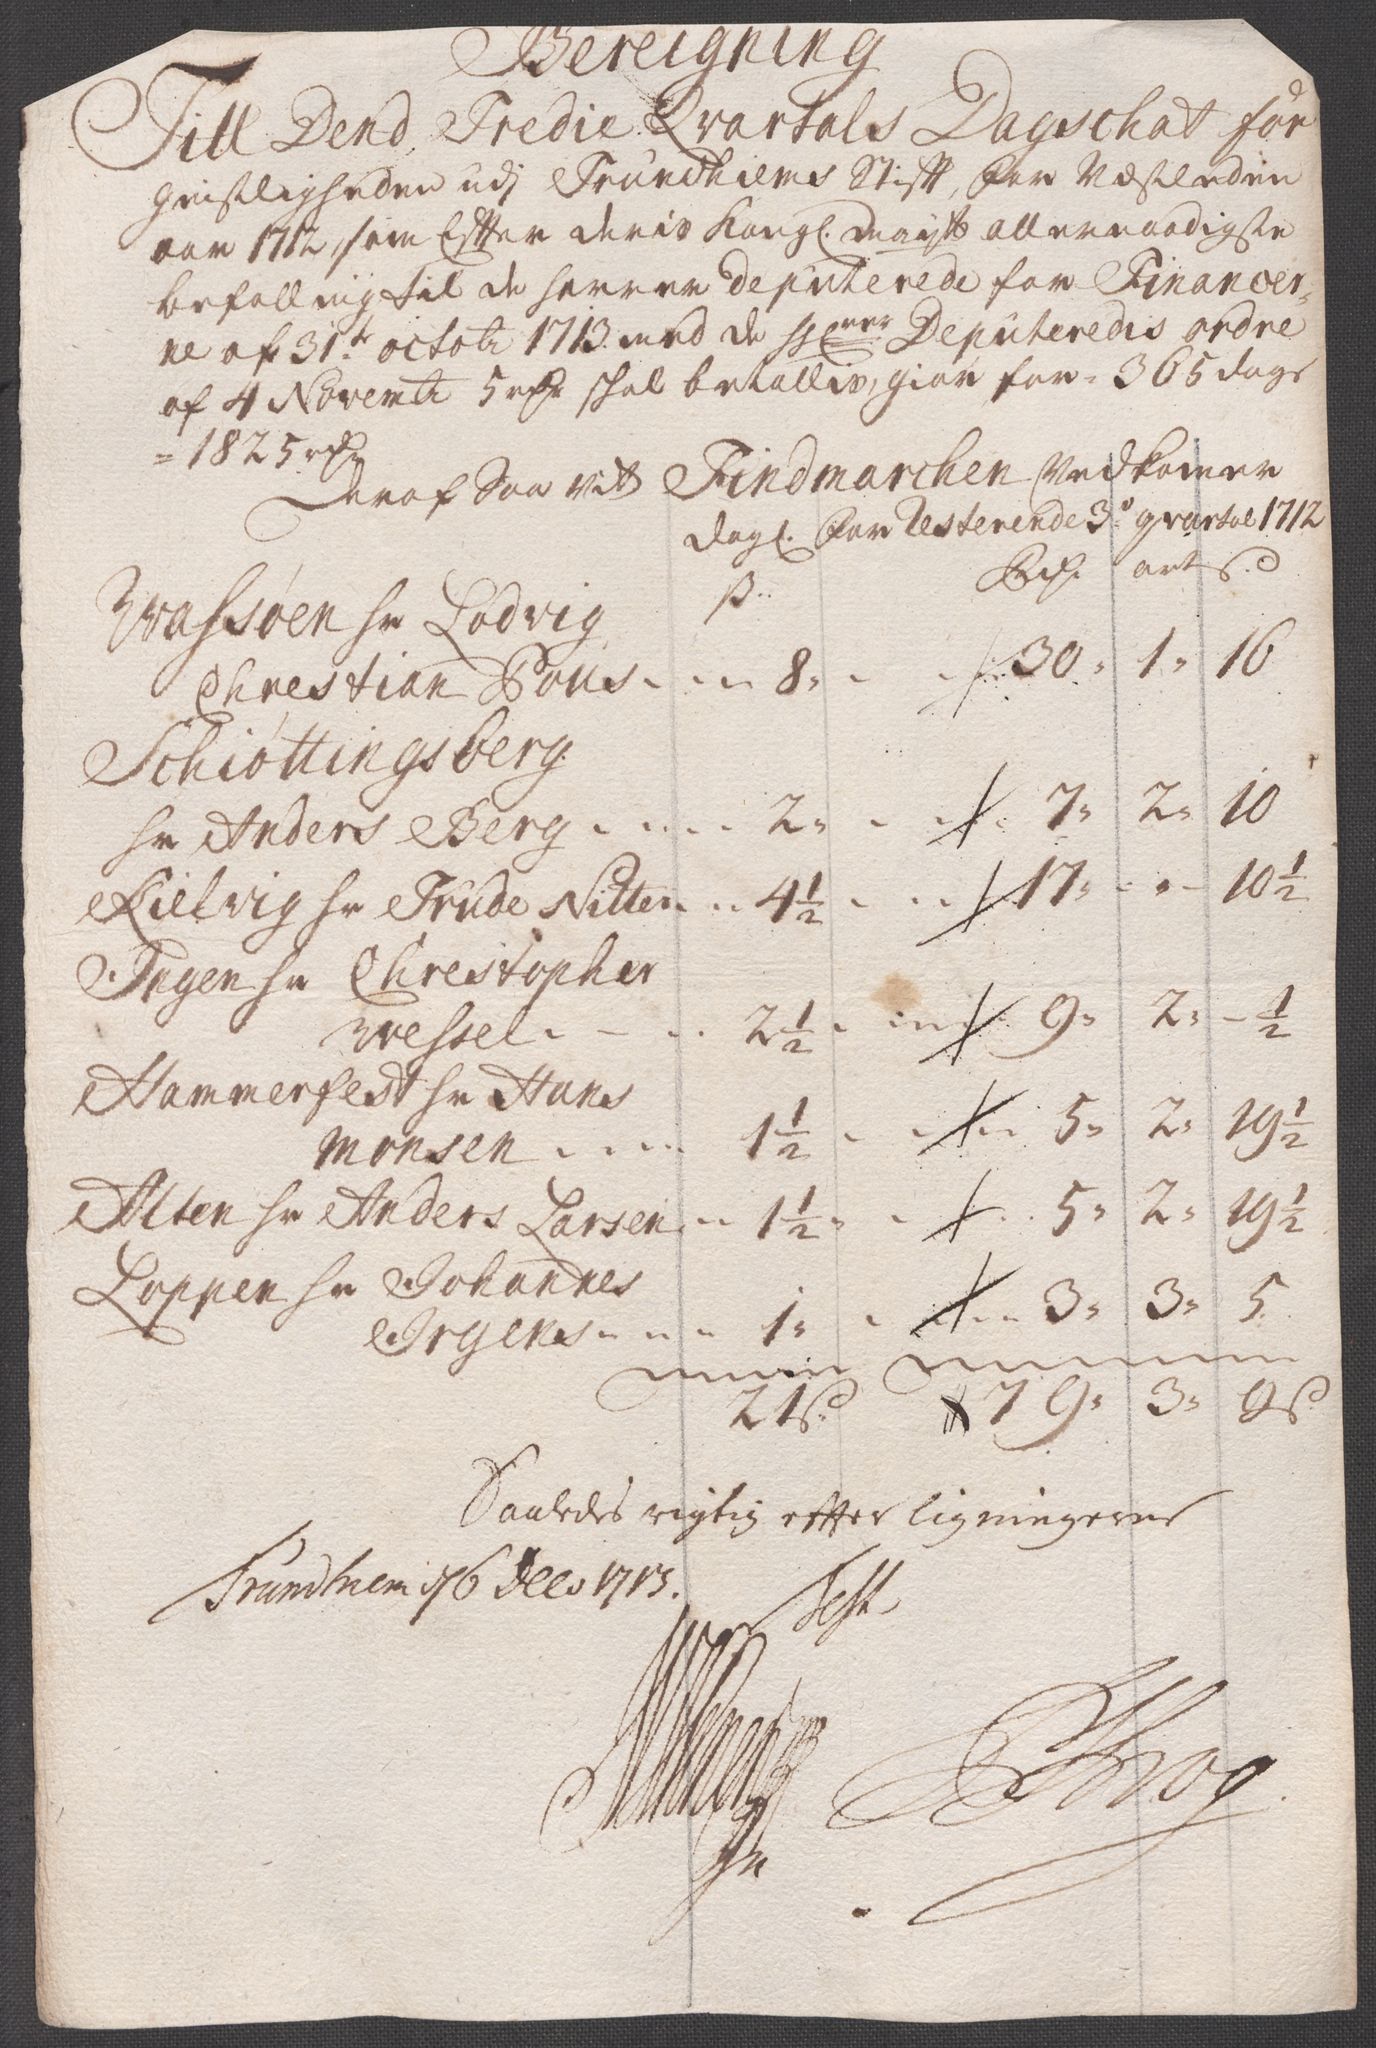 Bereigning
Till Dend Tredie Qvartals Dagschat for
geistligheden udj Trundhiems Stifft, for Næstleden
aar 1712, som Effter deris Kongl. maytt allernaadigste
befalling til de herrer Deputerede for Financer-
ne af 31te octob 1713 med de Herrer Deputeredis ordre
af 4 Novemb 5 rdr skal betallis, giør for 365 dage
= 1825 rdr
Deraf Saa vit Findmarchen Vedkomer
dagl. for Resterende 3de qvartal 1712
ß. Rdr. ort ß.
Wassøen hr Lodvig
Chrestian Pous 8 30 1 16
Schiøttingsberg
hr Anders Berg 2 7 2 10
Kielvig hr Trude Nitter 4½ 17 - - 10½
Ingen hr Christopher
Wessel 2½ 9 2 - ½
Hammerfest hr Hans
Monsen 1½ 5 2 19½
Alten hr Anders Larsen 1½ 5 2 19½
Loppen hr Johannes
Irgens 1 3 3 5
21 ß. 79 3 9 ß.
Saaledes rigtig effter ligningerne
Trundhiem 16 Dec 1713.
Test
Krog